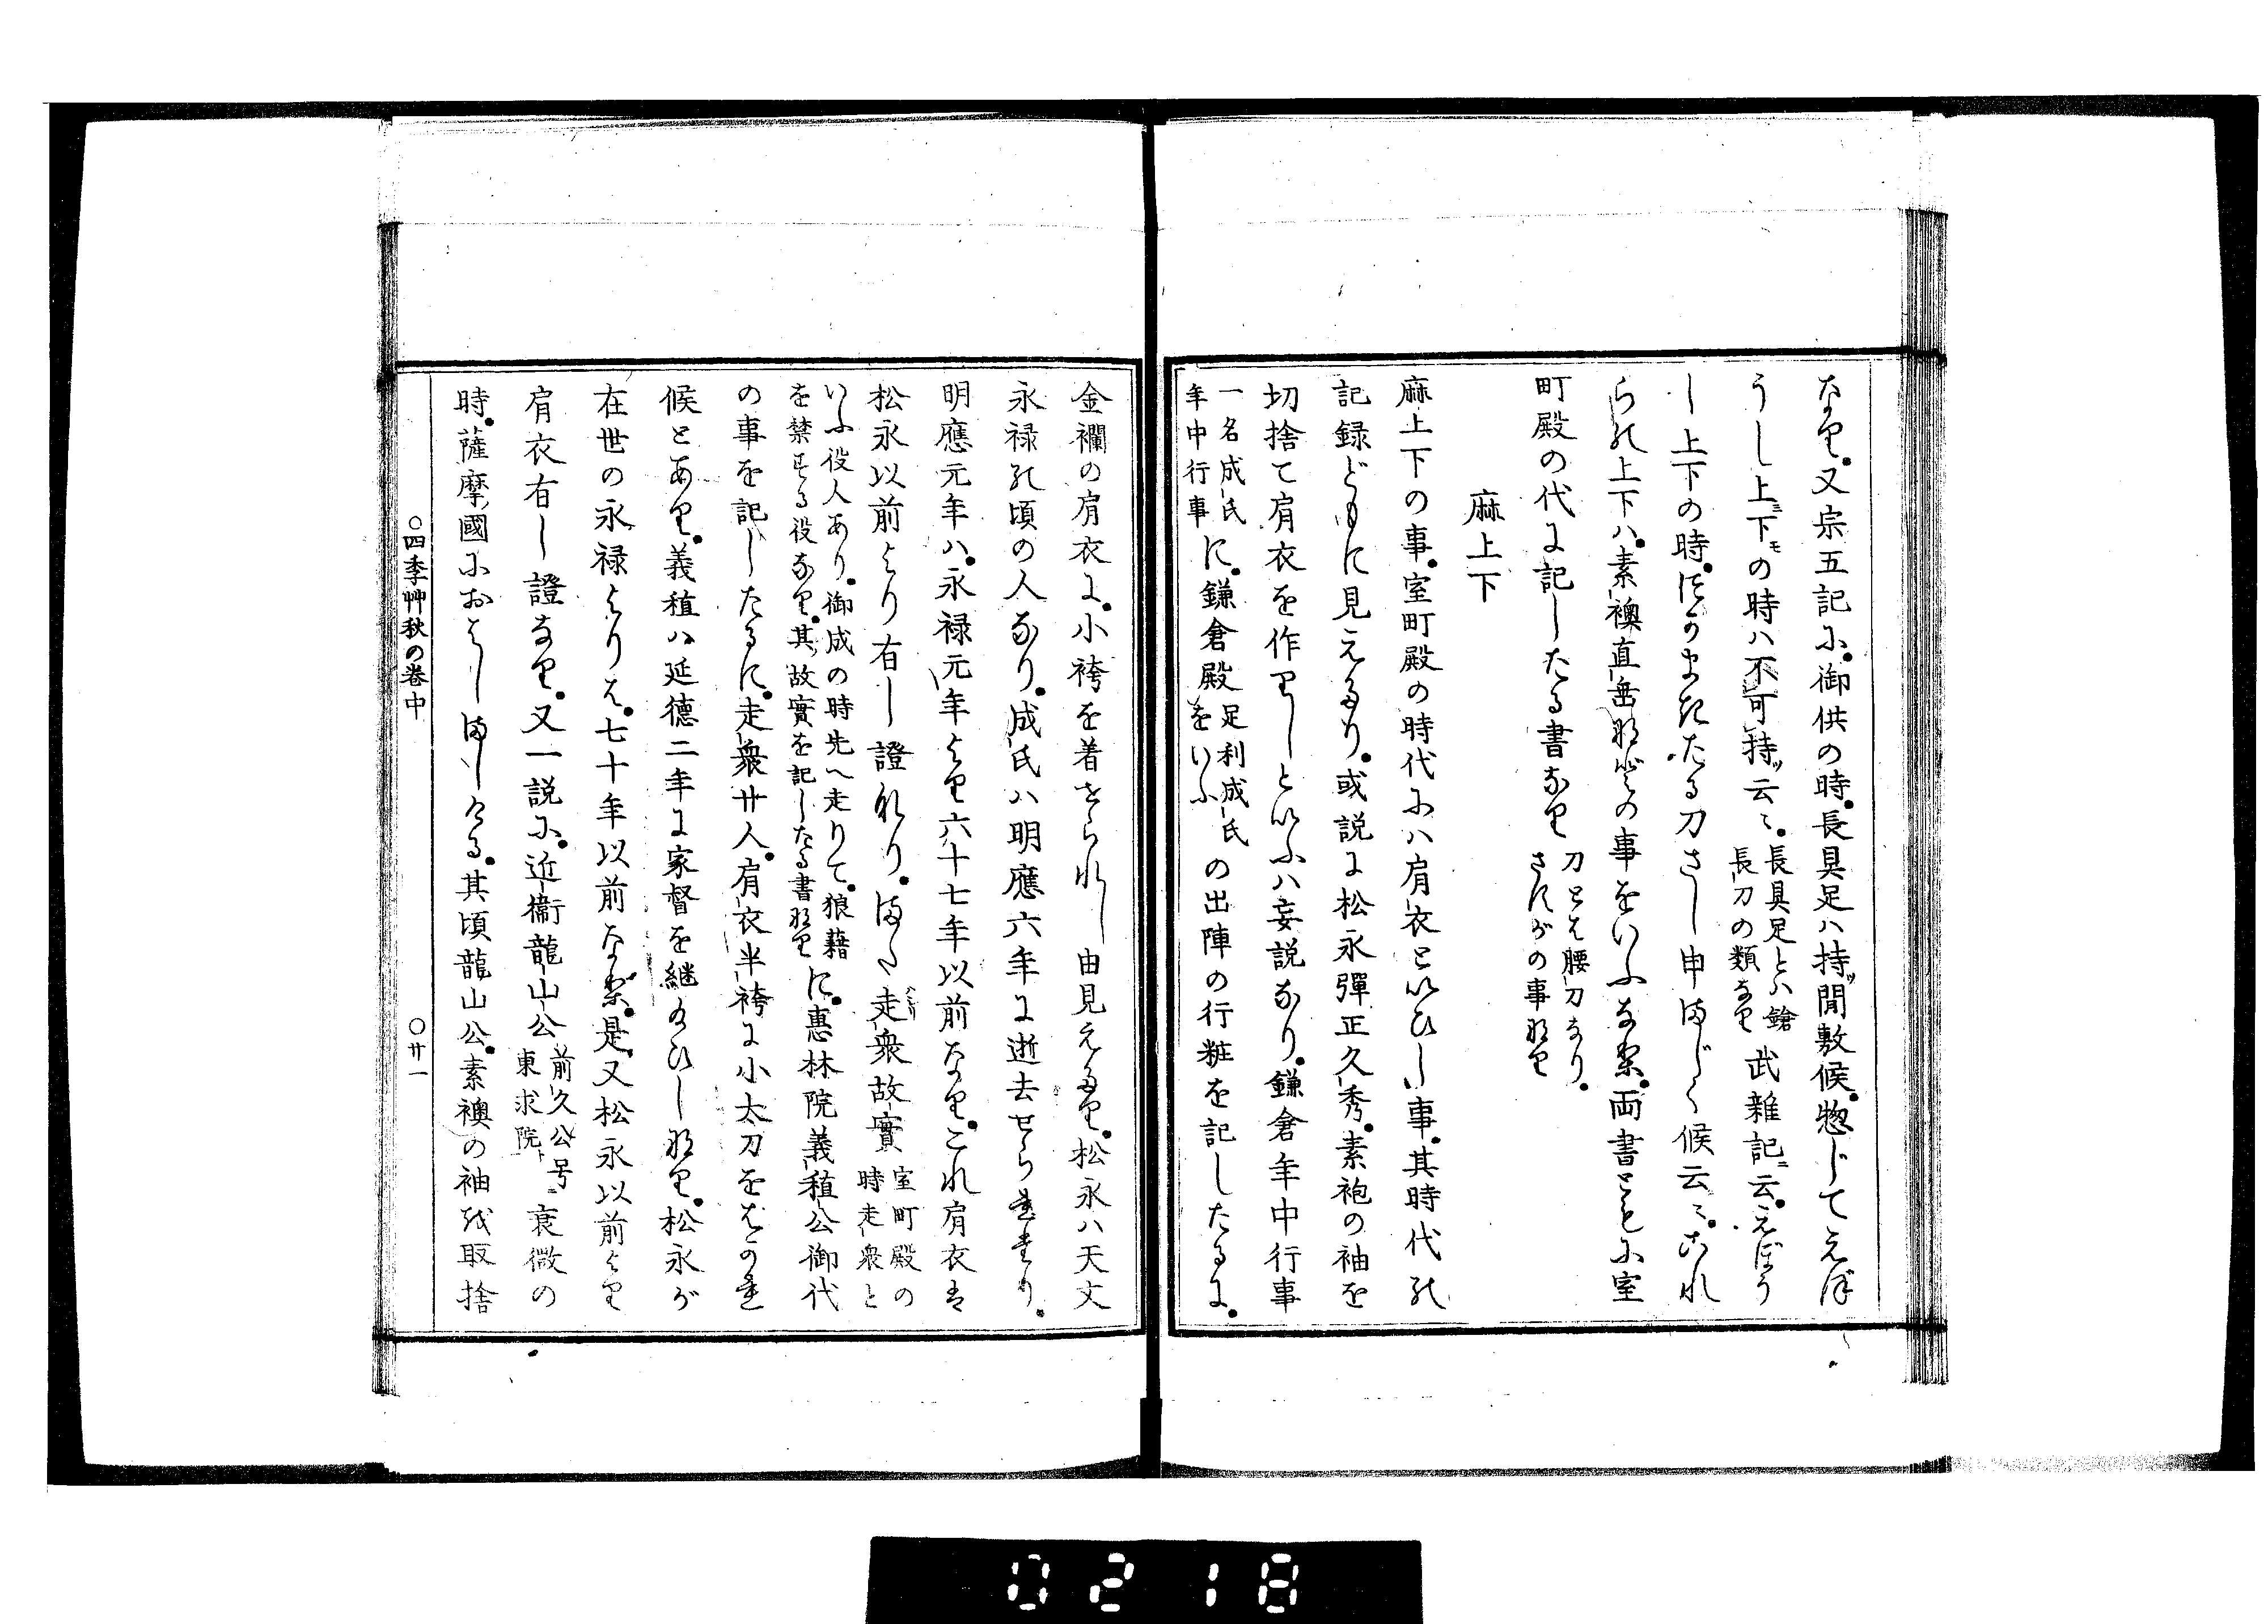 なり。又宗五記に。御供の時。長具足ハ持ッ間敷候。惣じてえぼ
うし上ニ下モの時ハ不可持ッ云〻。長具足とハ鎗長刀の類なり武雑記ニ云。えぼう
し上下の時。
たる刀さし申まじく候云〻。これ
らの上下ハ。素襖直垂などの事をいふなり。両書ともに室
町殿の代に記したる書なり刀とは腰刀なり。さすがの事なり
麻上下
麻上下の事。室町殿の時代にハ肩衣といひし事。其時代の
記録どもに見えたり。或説に松永彈正久秀。素袍の袖を
切捨て肩衣を作りしといふハ妄説なり。鎌倉年中行事
一名成氏年中行事に。鎌倉殿足利成氏をいふの出陣の行粧を記したるに。
金襴の肩衣に。小袴を着せられし由見えたり。松永ハ天文
永禄の頃の人なり。成氏ハ明應六年に逝去せられたり。
明應元年ハ。永禄元年より六十七年以前なり。これ肩衣は
松永以前より有し證なり。また走衆故實室町殿の時走衆と
いふ役人あり。御成の時先へ走りて。狼藉を禁ずる役なり。其故實を記したる書なりに。惠林院義稙公御代
の事を記したるに。走衆廿人。肩衣半袴に小太刀をはかれ
候とあり。義稙ハ延德二年に家督を継給ひしなり。松永が
在世の永禄よりは。七十年以前なり。是又松永以前より
肩衣有し證なり。又一説に。近衞龍山公前久公号ニ東求院ト衰微の
時。薩摩國におはしましける。其頃龍山公。素襖の袖を取捨
○四季艸秋の巻中　○廿一
0218